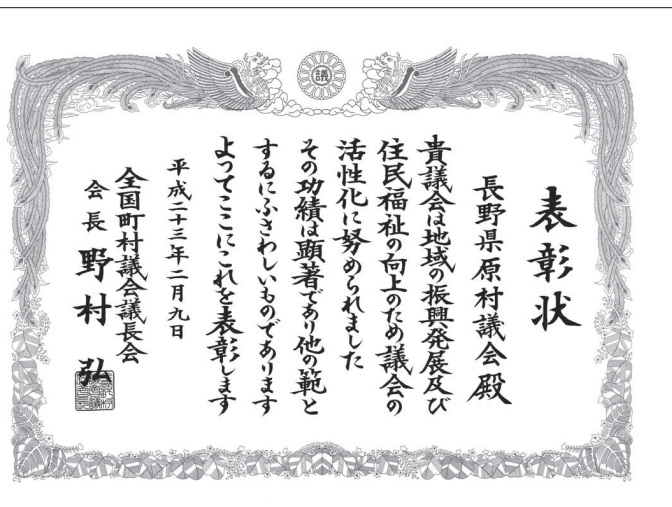 議
表彰状
長野県原村議会殿
貴議会は地域の振興発展及び
住民福祉の向上のため議会の
活性化に努められました
その功績は顕著であり他の範と
するにふさわしいものであります
よってここにこれを表彰します
平成二十三年二月九日
全国町村議会議長会
会長 野村 弘